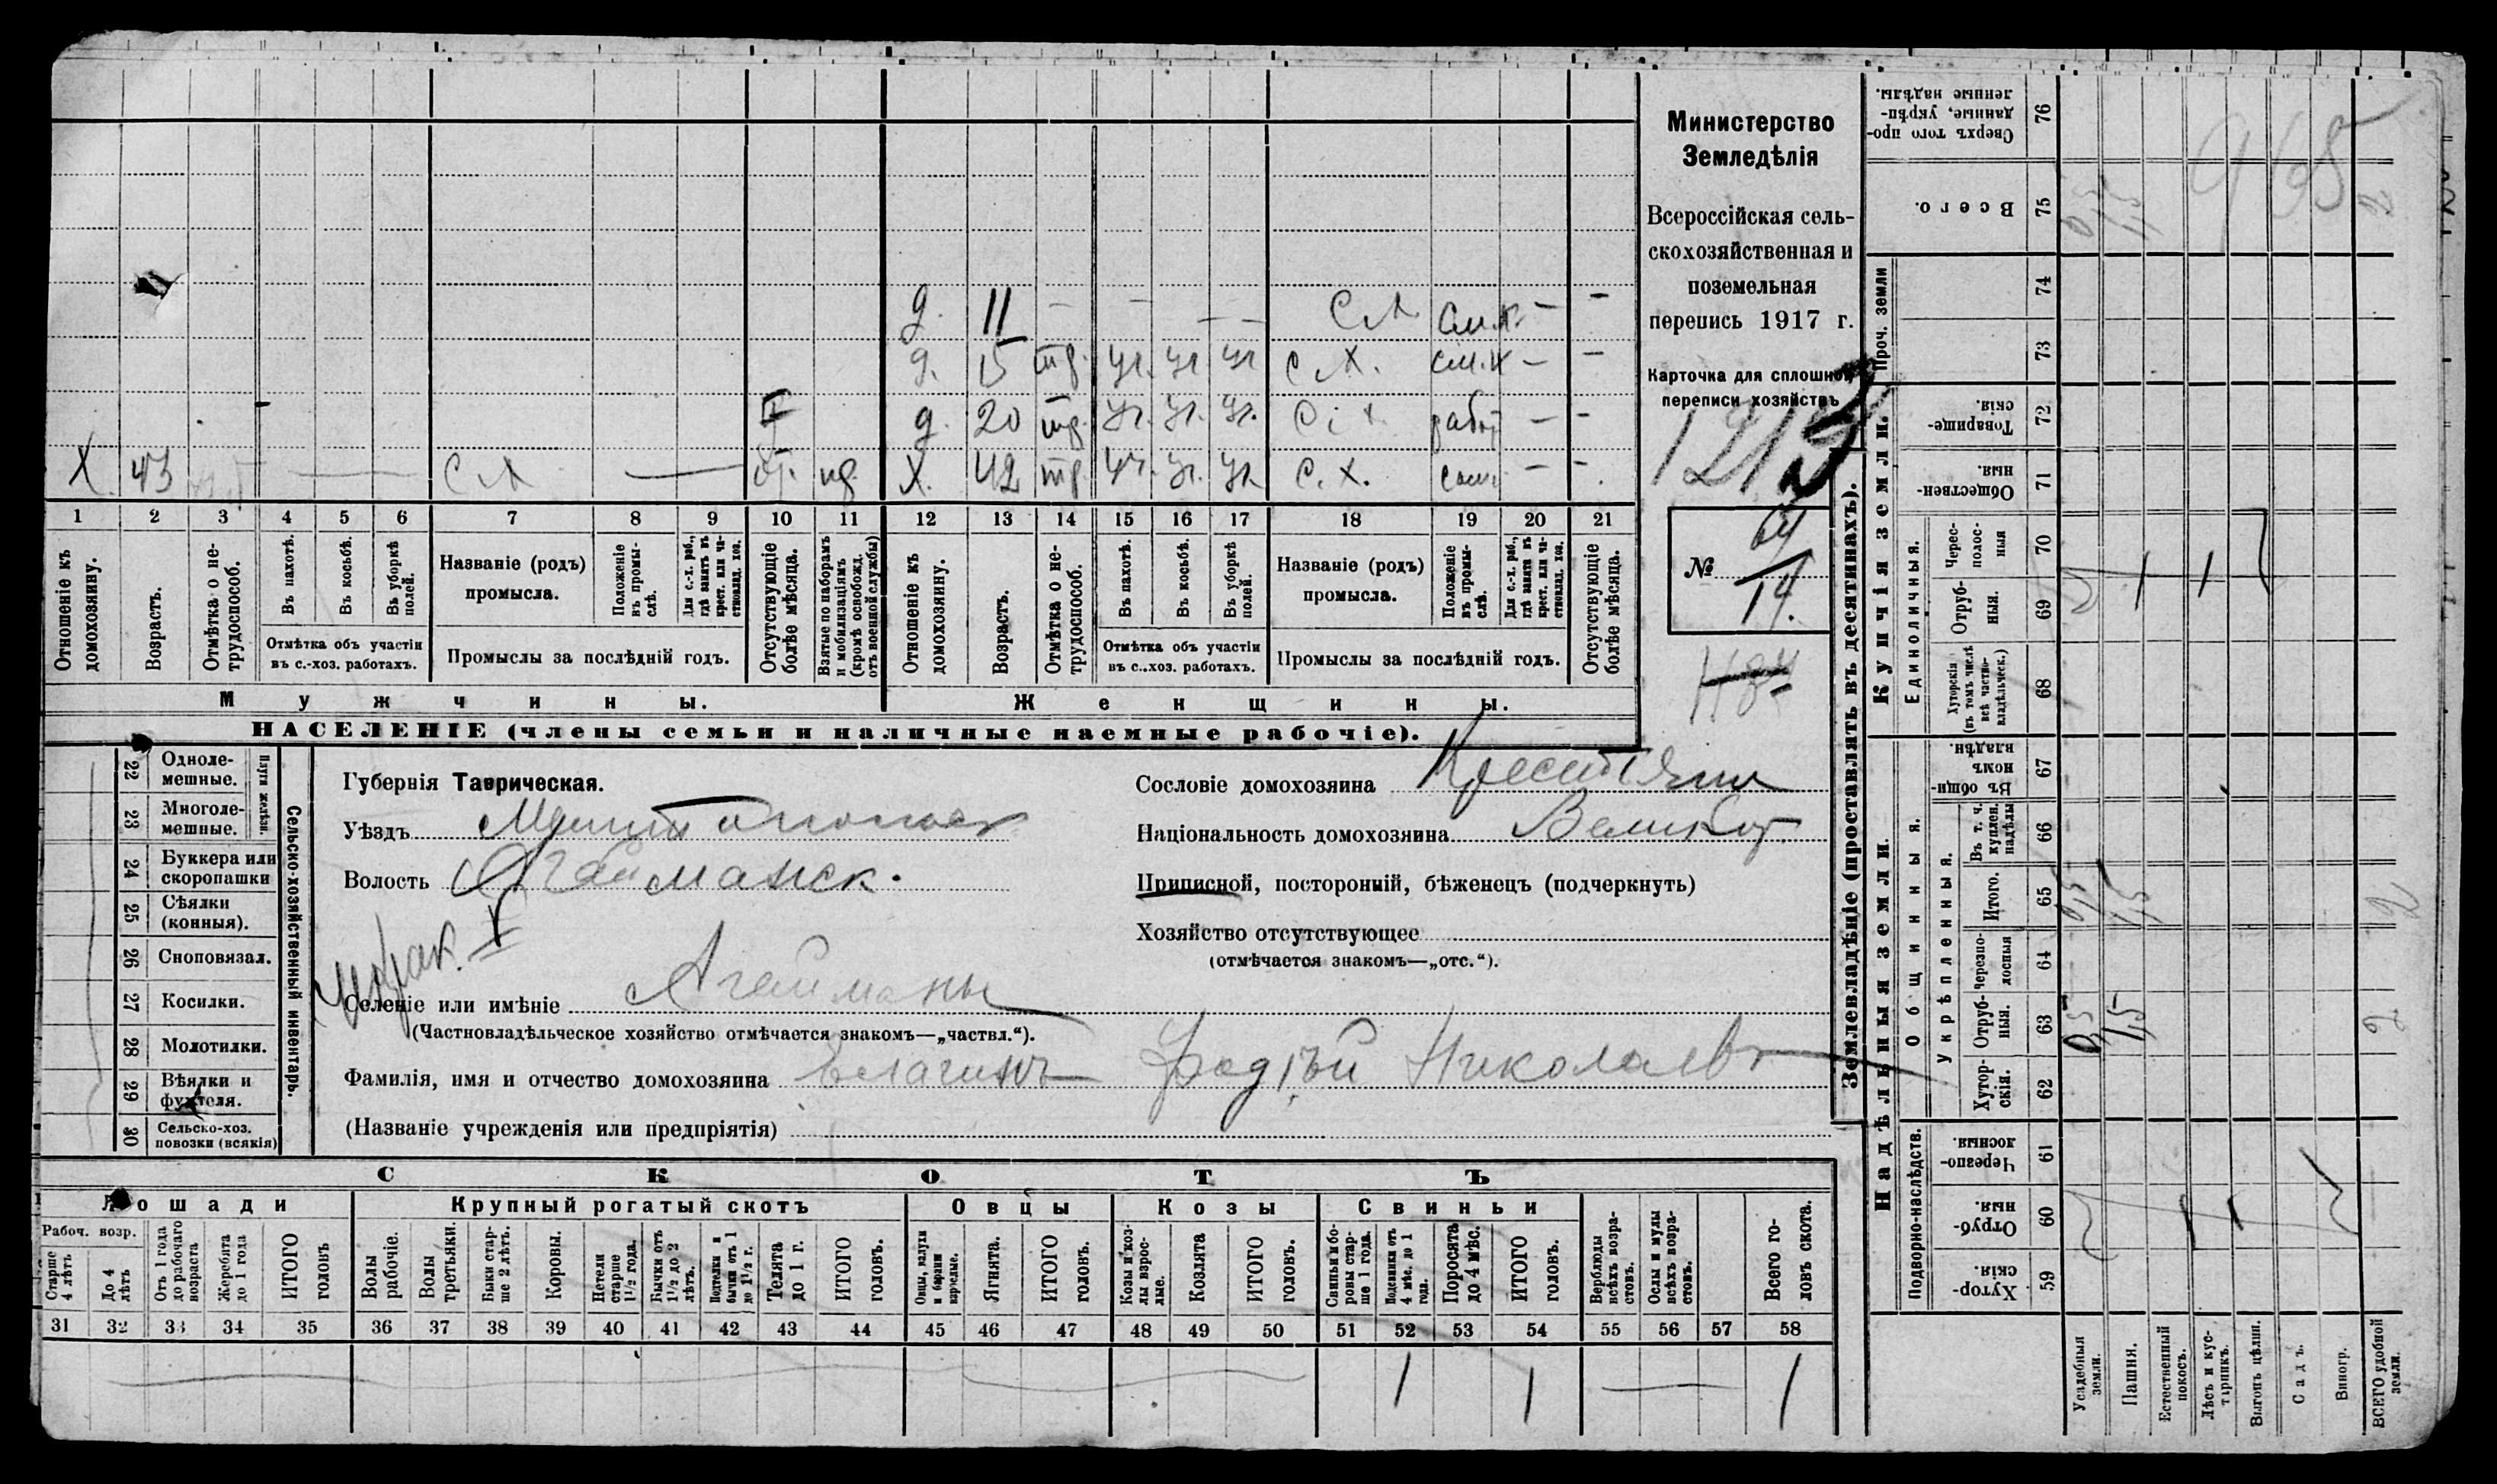 Министерство
Земледѣлія
Всероссійская сель-
скохозяйственная и
поземельная
перепись 1917 г.
Карточка для сплошной
переписи хозяйствъ
№ 64
14.
д. 11 — — — — С.Х. — —
д. 15 тр. уч. уч. уч. С.Х. — —
д. 20 тр. уч. уч. уч. С.Х. работ. — —
Х. 43 С.Х. — Х. 42 тр. уч. уч. уч. С.Х. — —
1 2 3 4 5 6 7 8 9 10 11 12 13 14 15 16 17 18 19 20 21
Отношеніе къ домохозяину.
Возрастъ.
Отмѣтка о не-трудоспособ.
Въ пахотѣ.
Въ косьбѣ.
Въ уборкѣ полей.
Отмѣтка объ участіи
въ с.-хоз. работахъ.
Названіе (родъ)
промысла.
Положеніе въ промы-слѣ.
Для с.-х. раб., гдѣ занятъ въ крест. или ча-стновлад. хоз.
Промыслы за послѣдній годъ.
Отсутствующіе болѣе мѣсяца.
Взятые по наборамъ и мобилизаціямъ (кромѣ освобожд. отъ военной службы)
Отношеніе къ домохозяину.
Возрастъ.
Отмѣтка о не-трудоспособ.
Въ пахотѣ.
Въ косьбѣ.
Въ уборкѣ полей.
Отмѣтка объ участіи
въ с.-хоз. работахъ.
Названіе (родъ)
промысла.
Положеніе въ промы-слѣ.
Для с.-х. раб., гдѣ занята въ крест. или ча-стновлад. хоз.
Промыслы за послѣдній годъ.
Отсутствующіе болѣе мѣсяца.
Мужчины. Женщины.
НАСЕЛЕНІЕ (члены семьи и наличные наемные рабочіе).
Сельско-хозяйственный инвентарь.
Плуги желѣзн.
22 Одноле-мешные.
23 Многоле-мешные.
24 Буккера или скоропашки
25 Сѣялки (конныя).
26 Сноповязал.
27 Косилки.
28 Молотилки.
29 Вѣялки и фухтеля.
30 Сельско-хоз. повозки (всякія)
Губернія Таврическая.
Уѣздъ Мелитопольск
Волость Агайманск.
Селеніе или имѣніе Агайманы
(Частновладѣльческое хозяйство отмѣчается знакомъ—„частвл.“).
Фамилія, имя и отчество домохозяина Николаев
(Названіе учрежденія или предпріятія)
Сословіе домохозяина Крестьянин
Національность домохозяина Великор.
Приписной, посторонній, бѣженецъ (подчеркнуть)
Хозяйство отсутствующее
(отмѣчается знакомъ—„отс.“).
СКОТЪ
Лошади
Рабоч. возр.
Старше 4 лѣтъ
До 4 лѣтъ
Отъ 1 года до рабочаго возраста
Жеребята до 1 года
ИТОГО головъ
Крупный рогатый скотъ
Волы рабочіе.
Волы третьяки.
Быки стар-ше 2 лѣтъ.
Коровы.
Нетели старше 1½ года.
Бычки отъ 1½ до 2 лѣтъ.
Подтелки и бычки отъ 1 до 1½ г.
Телята до 1 г.
ИТОГО головъ.
Овцы
Овцы, валухи и бараны взрослые.
Ягнята.
ИТОГО головъ.
Козы
Козы и коз-лы взрос-лые.
Козлята
ИТОГО головъ.
Свиньи
Свиньи и бо-ровы стар-ше 1 года.
Подсвинки отъ 4 мѣс. до 1 года.
Поросята до 4 мѣс.
ИТОГО головъ.
Верблюды всѣхъ возра-стовъ.
Ослы и мулы всѣхъ возра-стовъ.
Всего го-ловъ скота.
31 32 33 34 35 36 37 38 39 40 41 42 43 44 45 46 47 48 49 50 51 52 53 54 55 56 57 58
1 1 — 1
Землевладѣніе (проставлять въ десятинахъ).
Купчія земли.
Надѣльныя земли.
Проч. земли
Единоличныя.
Общинныя.
Укрѣпленныя.
Подворно-наслѣдств.
Сверхъ того про-данные, укрѣп-ленные надѣлы. 76
Всего. 75
74
73
Товарище-скія. 72
Обществен-ныя. 71
Черес-полос-ныя 70
Отруб-ныя. 69
Хуторскія (въ томъ числѣ всѣ частно-владѣльческ.) 68
Въ общин-номъ владѣн. 67
Въ т. ч. куплен. надѣлы 66
Итого. 65
Черезпо-лосныя 64
Отруб-ныя. 63
Хутор-скія. 62
Черезпо-лосныя. 61
Отруб-ныя. 60
Хутор-скія. 59
Усадебныя земли.
Пашня.
Естественный покосъ.
Лѣсъ и кус-тарникъ.
Выгонъ цѣлин.
Садъ.
Виногр.
ВСЕГО удобной земли.
0,5 1,5 2